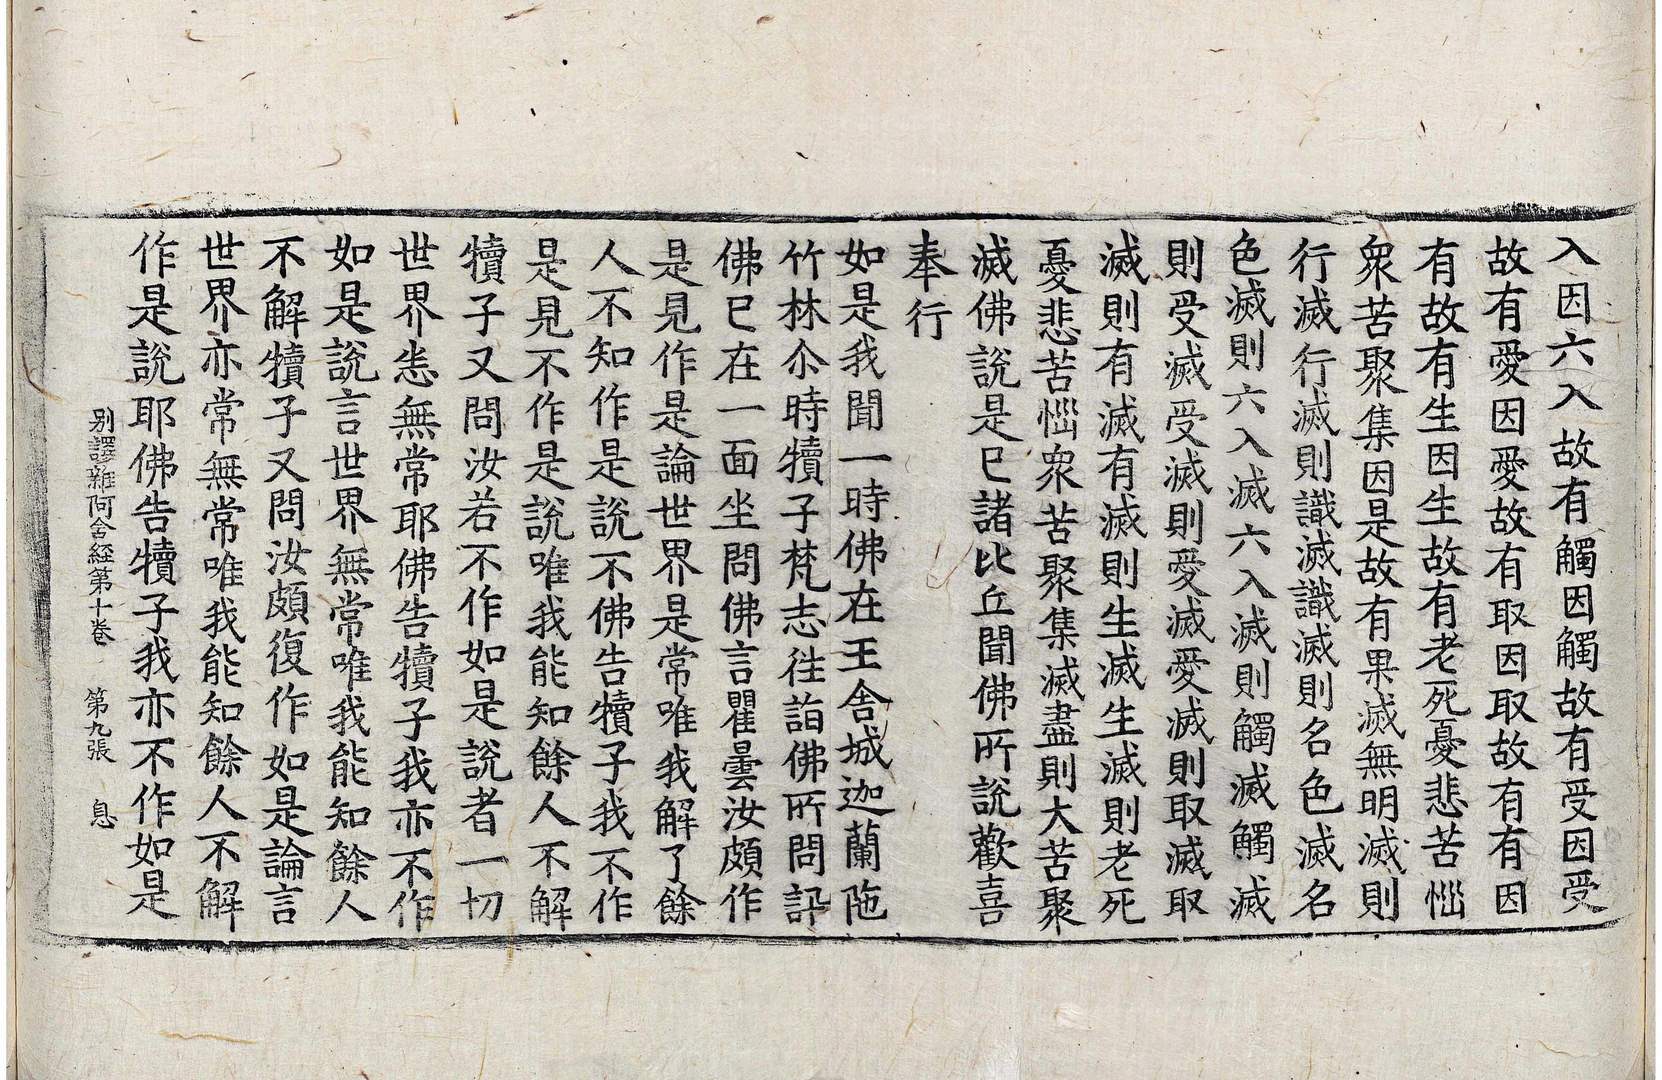 入因六入故有觸因觸故有受因受
故有愛因愛故有取因取故有有因
有故有生因生故有老死憂悲苦惱
衆苦聚集因是故有果滅無明滅則
行滅行滅則識滅識滅則名色滅名
色滅則六入滅六入滅則觸滅觸滅
則受滅受滅則愛滅愛滅則取滅取
滅則有滅有滅則生滅生滅則老死
憂悲苦惱衆苦聚集滅盡則大苦聚
滅佛說是已諸比丘聞佛所說歡喜
奉行
如是我聞一時佛在王舍城迦蘭陁
竹林尒時犢子梵志往詣佛所問訊
佛已在一面坐問佛言瞿曇汝頗作
是見作是論世界是常唯我解了餘
人不知作是說不佛告犢子我不作
是見不作是說唯我能知餘人不解
犢子又問汝若不作如是說者一切
世界悉無常耶佛告犢子我亦不作
如是說言世界無常唯我能知餘人
不解犢子又問汝頗復作如是論言
世界亦常無常唯我能知餘人不解
作是說耶佛告犢子我亦不作如是
别譯雜阿含經第十卷 第九張 息